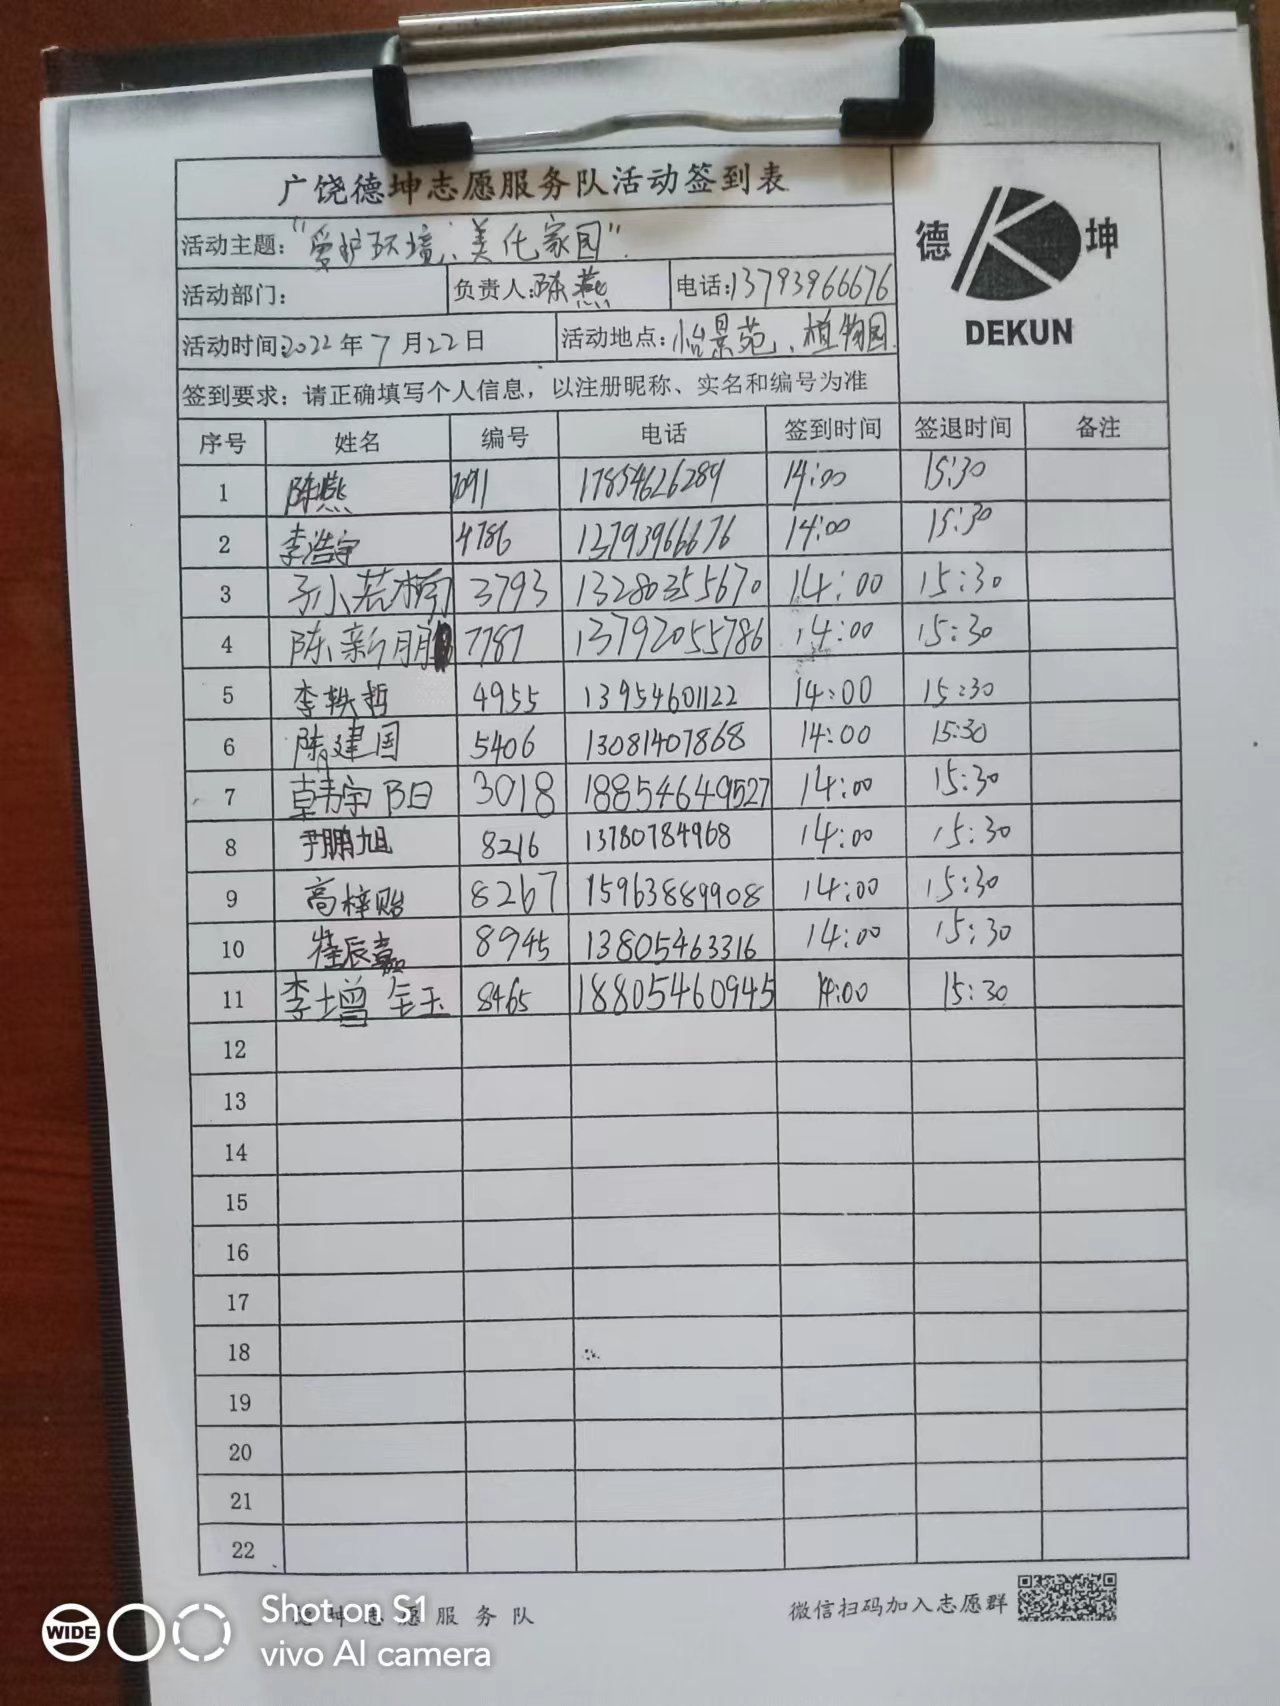 广饶德坤志愿服务队活动签到表
德 坤
DEKUN
活动主题："爱护环境、美化家园"
活动部门： 负责人：陈燕 电话：13793966676
活动时间：2022年7月22日 活动地点：怡景苑、植物园
签到要求：请正确填写个人信息，以注册昵称、实名和编号为准
序号 姓名 编号 电话 签到时间 签退时间 备注
1 陈燕 1091 17854626289 14:00 15:30
2 李浩宇 4786 13793966676 14:00 15:30
3 孙若楠 3793 13280355670 14:00 15:30
4 陈新朋 7787 13792055786 14:00 15:30
5 李轶哲 4955 13954601122 14:00 15:30
6 陈建国 5406 13081407868 14:00 15:30
7 韩宇阳 3018 18854649527 14:00 15:30
8 尹鹏旭 8216 13780784968 14:00 15:30
9 高梓贻 8267 15963889908 14:00 15:30
10 崔辰嘉 8945 13805463316 14:00 15:30
11 李增钰 8465 18805460945 14:00 15:30
12
13
14
15
16
17
18
19
20
21
22
坤志愿服务队
微信扫码加入志愿群
WIDE
Shot on S1
vivo AI camera